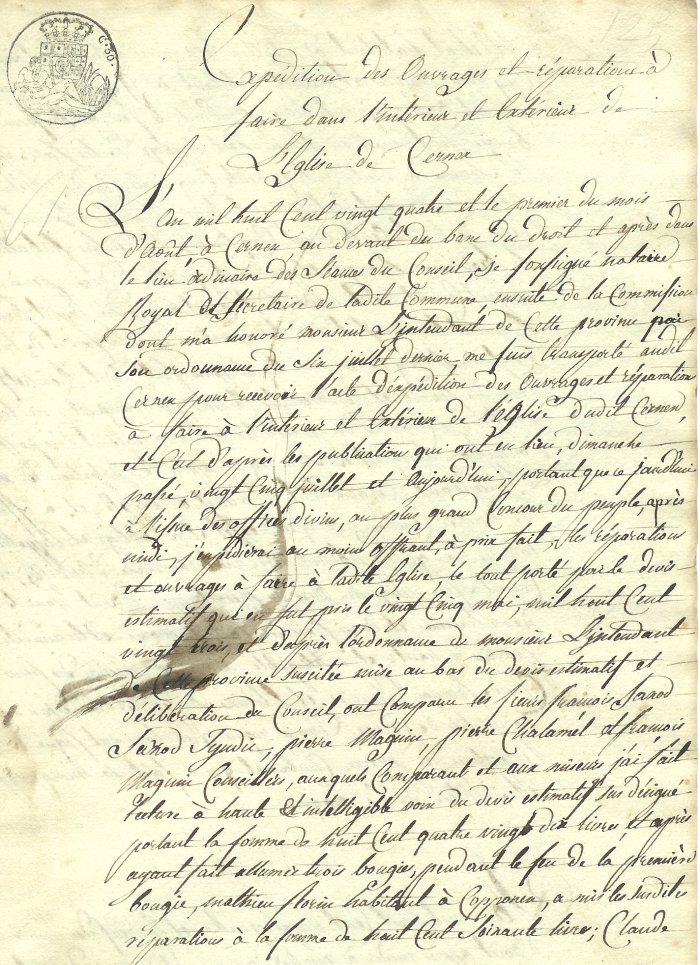 C. 60.
Expédition des Ouvrages et réparations à
faire dans l'intérieur et Extérieur de
L'Eglise de Cernex
L'an mil huit Cent vingt quatre et le premier du mois
d'Août, à Cernex au devant du banc du droit et après dans
le lieu ordinaire des séances du Conseil, Je soussigné notaire
Royal et secretaire de ladite Commune, ensuite de la Commission
dont m'a honoré monsieur L'intendant de Cette province par
son ordonnance du six juillet dernier me suis transporté audit
Cernex pour recevoir l'acte d'éxpédition des Ouvrages et réparation
à faire à l'intérieur et Extérieur de l'église dudit Cernex,
et Ceci d'après les publication qui ont eu lieu, dimanche
passé, vingt Cinq juillet et Aujourd'hui, portant que ce jourd'hui
à l'issue des offices divins, au plus grand Concour du peuple, après
midi, j'expédierai au moin offrant, à prix fait, les réparation
et ouvrages à faire à ladite Eglise, le tout porté par le devis
estimatif qui en fut pris le vingt Cinq mai, mil huit Cent
vingt trois, et d'après l'ordonnance de monsieur L'intendant
de Cette province suscitée mise au bas du devis estimatif et
délibération du Conseil, ont Comparu les sieurs françois Janod
Janod Syndic, pierre Maquin, pierre Chalamel et françois
Maquin Conseillers, auxquels Comparant et aux miseurs j'ai fait
lecture à haute et intelligible voix du devis estimatif sus désigné
portant la somme de huit Cent quatre vingt dix livres, et après
ayant fait allumer trois bougies, pendant le feu de la première
bougie, mathieu florin habitant à Copponex, a mis les susdites
réparations à la somme de huit Cent soixante livres; Claude